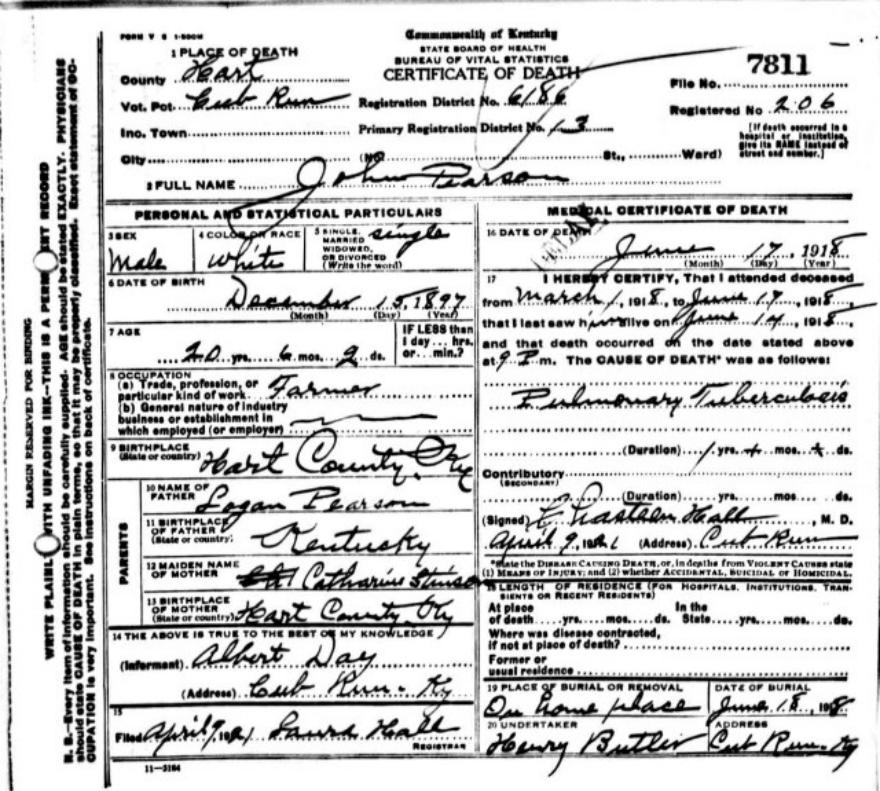 FORM V S 1-500M
Commonwealth of Kentucky
STATE BOARD OF HEALTH
BUREAU OF VITAL STATISTICS
CERTIFICATE OF DEATH
1 PLACE OF DEATH
County Hart
Vot. Pct. Cub Run
Inc. Town
City (No. St., Ward)
Registration District No. 6186
Primary Registration District No. 13
File No. 7811
Registered No 206
[If death occurred in a hospital or institution, give its NAME instead of street and number.]
2 FULL NAME John Pearson
PERSONAL AND STATISTICAL PARTICULARS
3 SEX Male
4 COLOR OR RACE White
5 SINGLE, MARRIED WIDOWED, OR DIVORCED (Write the word) single
6 DATE OF BIRTH
December 15, 1897
(Month) (Day) (Year)
7 AGE
20 yrs. 6 mos. 2 ds.
IF LESS than 1 day... hrs. or... min.?
8 OCCUPATION
(a) Trade, profession, or particular kind of work Farmer
(b) General nature of industry business or establishment in which employed (or employer)
9 BIRTHPLACE
(State or country) Hart County Ky
PARENTS
10 NAME OF FATHER Logan Pearson
11 BIRTHPLACE OF FATHER (State or country) Kentucky
12 MAIDEN NAME OF MOTHER Catharine Stinson
13 BIRTHPLACE OF MOTHER (State or country) Hart County Ky
14 THE ABOVE IS TRUE TO THE BEST OF MY KNOWLEDGE
(Informant) Albert Day
(Address) Cub Run - Ky
15
Filed April 9, 1921 Laura Hall
REGISTRAR
11-3184
MEDICAL CERTIFICATE OF DEATH
16 DATE OF DEATH
June 17, 1918
(Month) (Day) (Year)
17 I HEREBY CERTIFY, That I attended deceased
from March 1, 1918, to June 17, 1918
that I last saw him alive on June 14, 1918,
and that death occurred on the date stated above
at 9 P m. The CAUSE OF DEATH* was as follows:
Pulmonary Tuberculosis
(Duration) 1 yrs. + mos. + ds.
Contributory
(SECONDARY)
(Duration) yrs. mos. ds.
(Signed) Hall, M. D.
April 9, 1921 (Address) Cub Run
*State the DISEASE CAUSING DEATH, or, in deaths from VIOLENT CAUSES state
(1) MEANS OF INJURY; and (2) whether ACCIDENTAL, SUICIDAL OR HOMICIDAL.
18 LENGTH OF RESIDENCE (FOR HOSPITALS, INSTITUTIONS, TRANSIENTS OR RECENT RESIDENTS)
At place of death yrs. mos. ds. In the State yrs. mos. ds.
Where was disease contracted, if not at place of death?
Former or usual residence
19 PLACE OF BURIAL OR REMOVAL On home place
DATE OF BURIAL June 18, 1918
20 UNDERTAKER Henry Butler
ADDRESS Cub Run - Ky
MARGIN RESERVED FOR BINDING
WRITE PLAINLY WITH UNFADING INK—THIS IS A PERMANENT RECORD
N. B.—Every item of information should be carefully supplied. AGE should be stated EXACTLY. PHYSICIANS
should state CAUSE OF DEATH in plain terms, so that it may be properly classified. Exact statement of OC-
CUPATION is very important. See instructions on back of certificate.